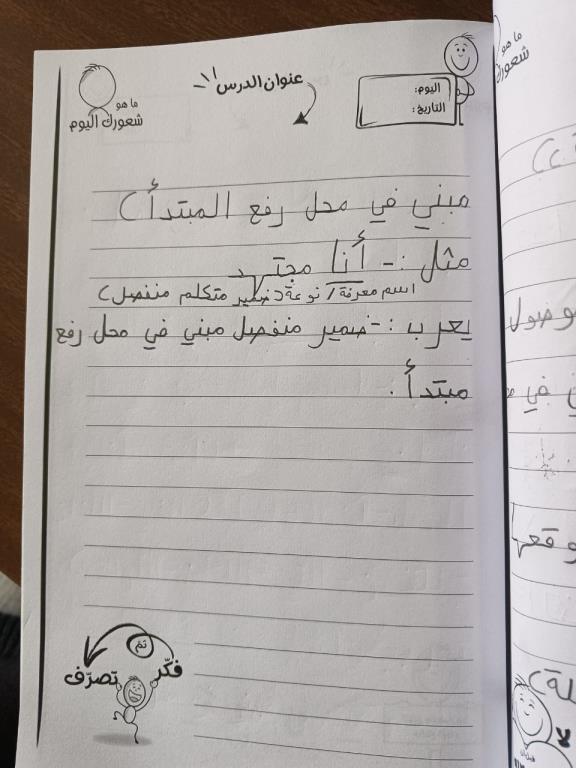 ما هو
شعورك اليوم
عنوان الدرس
اليوم:
التاريخ:
مبني في محل رفع المبتدأ)
مثل :- أنا مجتهد
اسم معرفة / نوعة (ضمير متكلم منفصل)
يعرب :- ضمير منفصل مبني في محل رفع
مبتدأ .
فكّر
ثم
تصرّف
ما هو
شعورك
في